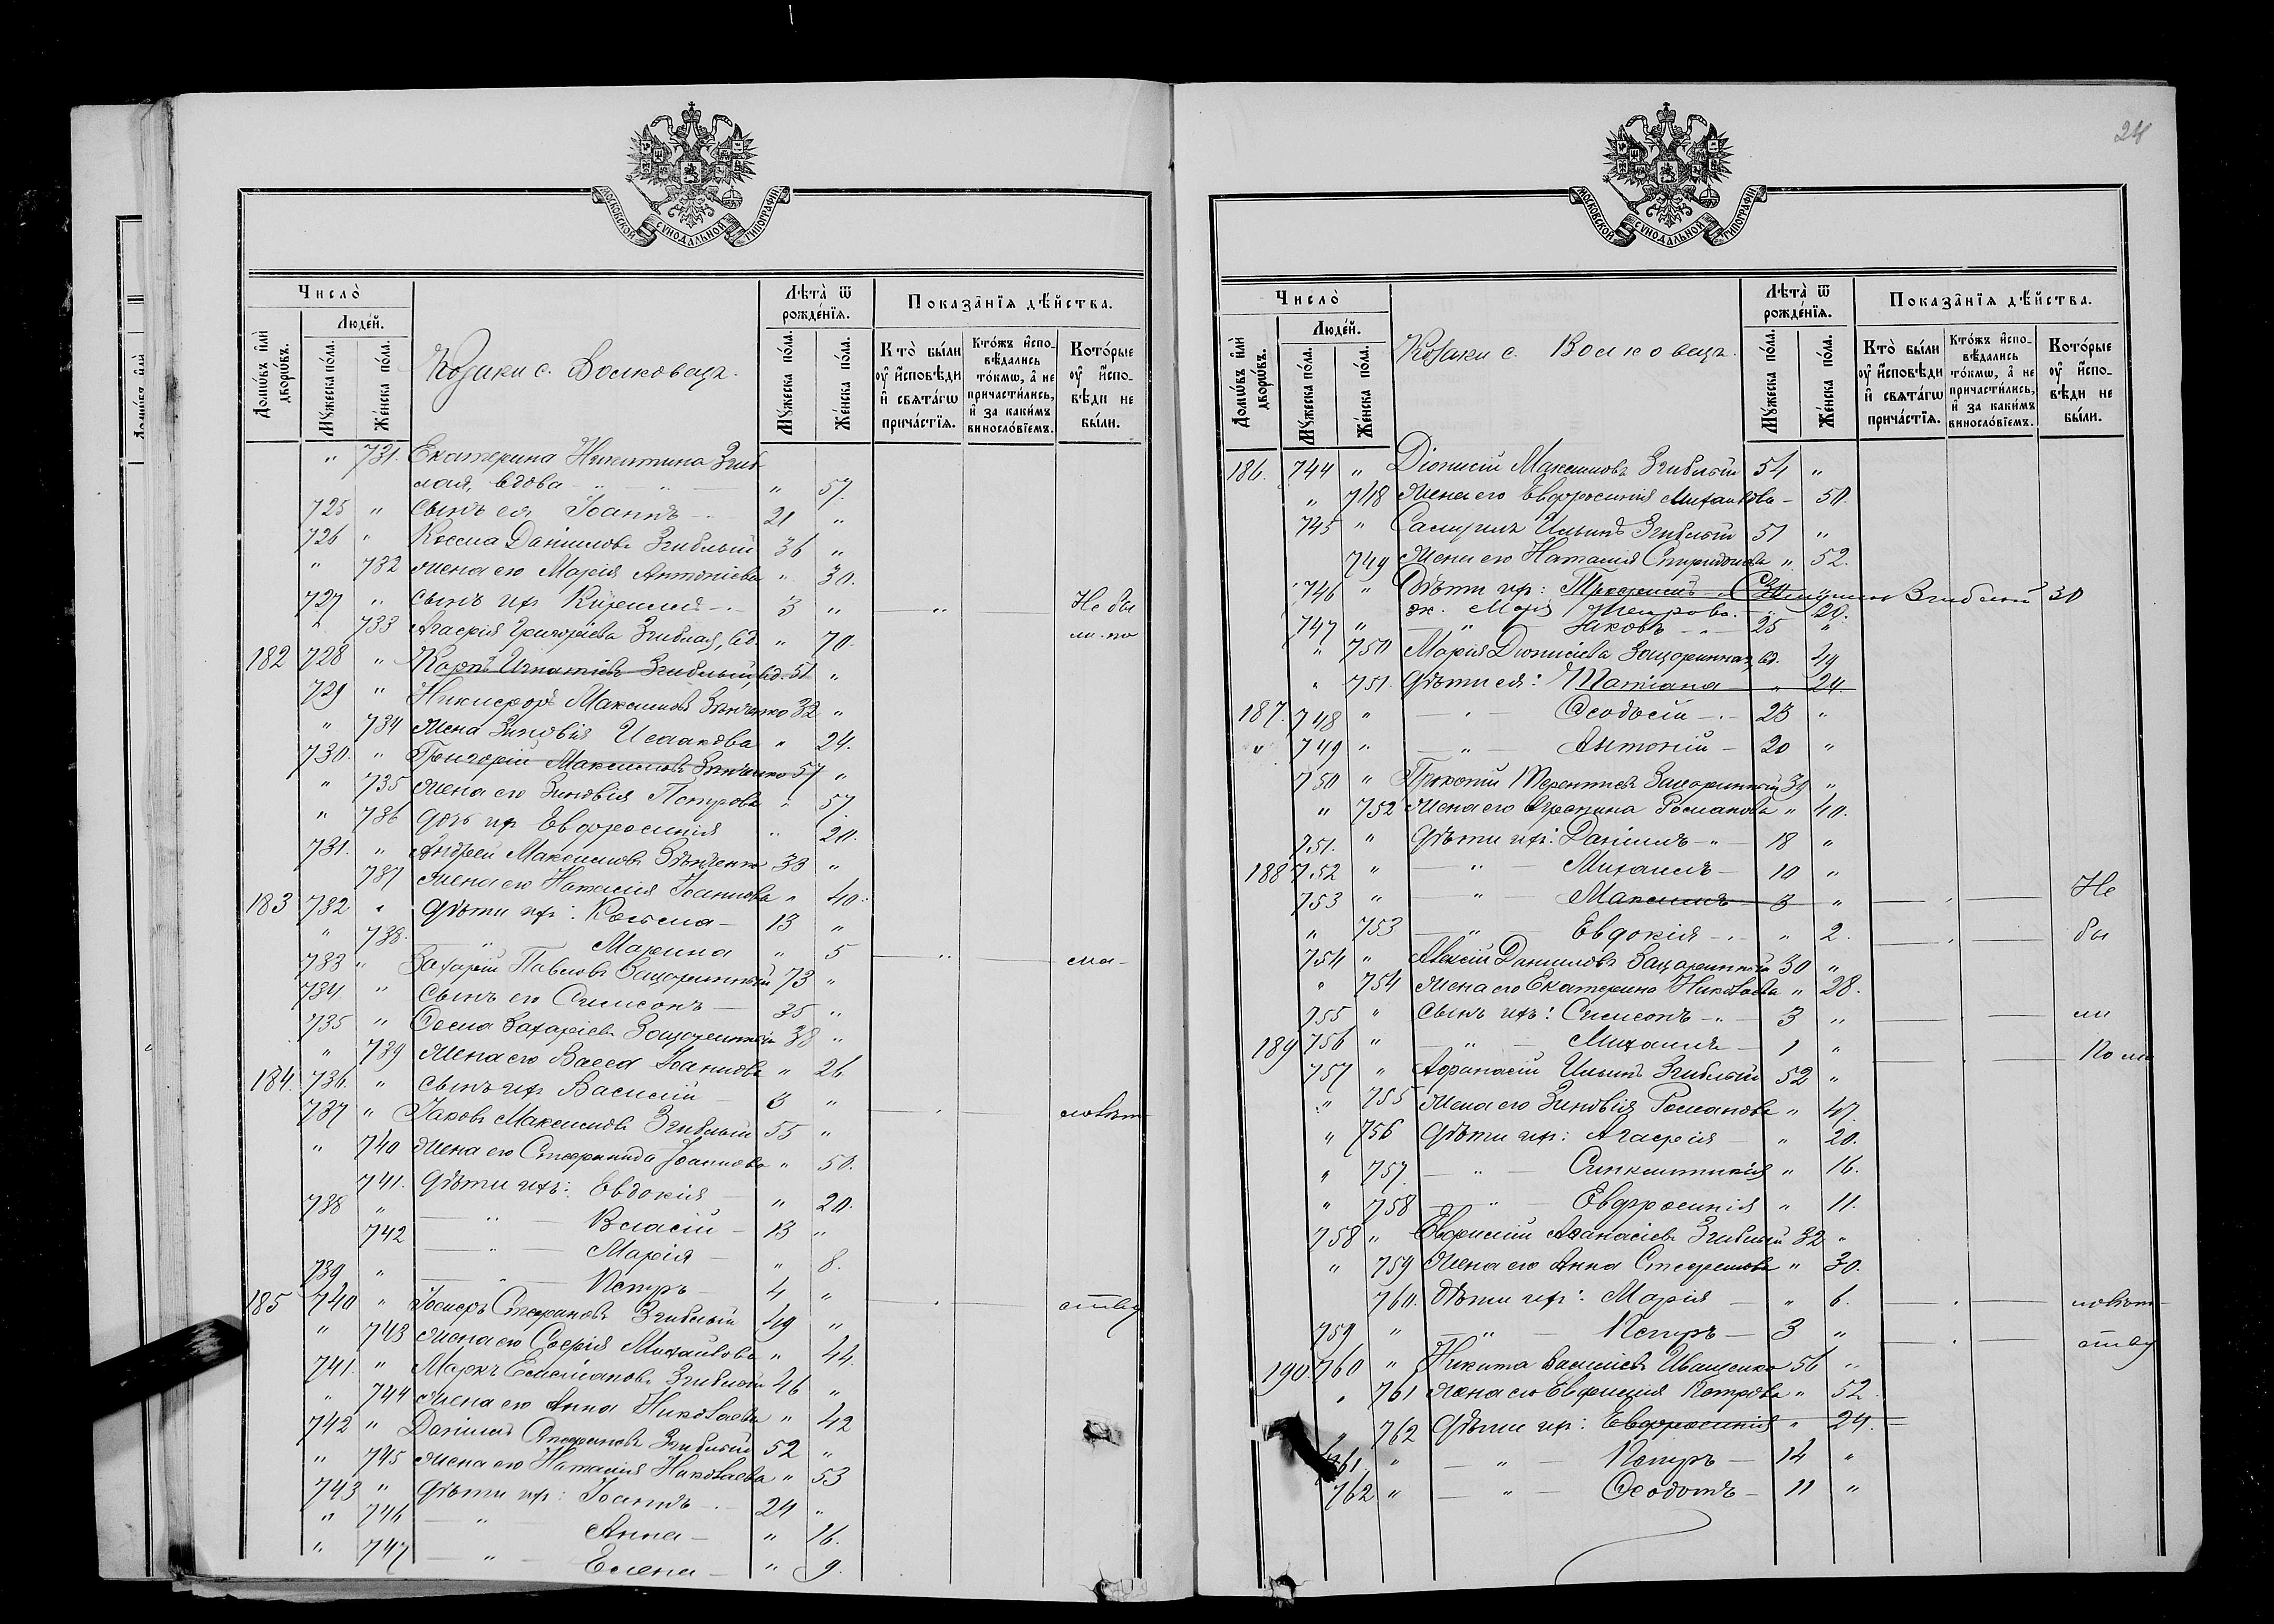 МОСКОВСКОЙ СѴНОДАЛЬНОЙ ТИПОГРАФІИ
Число̀
Людей.
Домѡвъ илѝ дворѡвъ.
Мужеска по́ла.
Же́нска по́ла.
Козаки с. Волковецъ.
Лѣта̀ ѿ рожде́нїѧ.
Мужеска по́ла.
Же́нска по́ла.
Показа̑нїѧ дѣ́йства.
Кто̀ бы́ли оу҆ и҆сповѣди и҆ свѧта́гѡ прича́стїѧ.
Кто́жъ и҆спо-вѣдались то́кмѡ, а҆ не причасти́лись, и҆ за каки́мъ винослόвїемъ.
Кото́рые оу҆ и҆спо-вѣди не бы́ли.
" 731. Екатерина Никитина Згиб
лая, вдова " 57.
725 " сынъ ея Іоаннъ 21 "
726 " Косма Даніиловъ Згиблый 36 "
" 732 жена его Марія Антоніева " 30.
727 " сынъ ихъ Кириллъ 3 " " Не бы
" 733 Агафія Григоріева Згиблая, вд. " 70. ли по
182 728 " Карпъ Игнатіевъ Згиблый, вд. 51 "
729 " Никифоръ Максимовъ Зѣнченко 32 "
" 734 жена Зиновія Исаакова " 24.
730. " Григорій Максимовъ Зѣнченко 57 "
" 735 жена его Зиновія Петрова " 57.
" 736 дочь ихъ Евфросинія " 20.
731. " Андрей Максимовъ Зѣнченко 33 "
737 жена его Наталія Іоаннова " 40.
183 732 " дѣти ихъ: Косьма 13 "
" 738. " Марина " 5
733 " Захарій Павловъ Защаринный 73 " " ма-
734 " сынъ его Симеонъ 35 "
735 " Ѳома Захаріевъ Защаринный 38 "
" 739 жена его Васса Іоаннова " 26
184. 736. " сынъ ихъ Василій 3 "
737 " Іаковъ Максимовъ Згиблый 55 " ловѣт-
" 740 жена его Стефанида Іоаннова " 50.
741. дѣти ихъ: Евдокія " 20.
738 " " Власій 13 "
742 " Марія " 8.
739 " " Петръ 4 "
185 740 " Іосифъ Стефановъ Згиблый 49 " ству
" 743 жена его Софія Михайлова " 44.
741. " Маркъ Емеліановъ Згиблый 46 "
" 744 жена его Анна Николаева " 42
742 " Даніилъ Стефановъ Згиблый 52 "
" 745 жена его Наталія Николаева " 53
743 " дѣти ихъ: Іоаннъ 24 "
" 746 " Анна " 16.
" 747 " Елена " 9.
24
МОСКОВСКОЙ СѴНОДАЛЬНОЙ ТИПОГРАФІИ
Число̀
Людей.
Домѡвъ илѝ дворѡвъ.
Мужеска по́ла.
Же́нска по́ла.
Козаки с. Волковецъ.
Лѣта̀ ѿ рожде́нїѧ.
Мужеска по́ла.
Же́нска по́ла.
Показа̑нїѧ дѣ́йства.
Кто̀ бы́ли оу҆ и҆сповѣди и҆ свѧта́гѡ прича́стїѧ.
Кто́жъ и҆спо-вѣдались то́кмѡ, а҆ не причасти́лись, и҆ за каки́мъ винослόвїемъ.
Кото́рые оу҆ и҆спо-вѣди не бы́ли.
186. 744 " Діонисій Максимовъ Згиблый 54 "
" 748 жена его Евфросинія Михайлова 50.
745 " Самуилъ Ильинъ Згиблый 51 "
749 жена его Наталія Спиридонова " 52.
746 " Дѣти ихъ: Згиблый 30
ж. Марія Петрова " 20.
747 " " Іаковъ 25 "
" 750 Марія Діонисіева Защаринная, вд. 49
" 751. дѣти ея: Татіана " 24.
187. 748 " " Ѳеодосій 23 "
" 749 " " Антоній 20 "
750 " Прокопій Терентіевъ Защаринный 39 "
" 752 жена его Агрепина Романова " 40.
751. " дѣти ихъ: Даніилъ 18 "
188 752 " " Михаилъ 10 "
753 " " Максимъ 3 " Не
" 753 " Евдокія " 2. бы
754 " Алексій Даниловъ Защаринный 30 "
" 754 жена его Екатерина Николаева " 28.
755 " сынъ ихъ: Симеонъ 3 " ли
189 756 " " Михаилъ 1 " По ма
757 " Афанасій Ильинъ Згиблый 52 "
" 755 жена его Зиновія Романова " 47.
" 756 дѣти ихъ: Агафія " 20.
" 757. " Синклитикія " 16.
" 758 " Евфросинія " 11.
758 " Евфимій Аѳанасіевъ Згиблый 32 "
" 759 жена его Анна Стефанова " 30.
760. дѣти ихъ: Марія " 6. ловѣт-
759 " " Петръ 3 " ству
190. 760 " Никита Васильевъ Иващенко 56 "
" 761 жена его Евфимія Петрова " 52.
" 762 дѣти ихъ: Евфросинія " 24.
761 " " Петръ 14 "
762 " " Ѳеодотъ 11 "